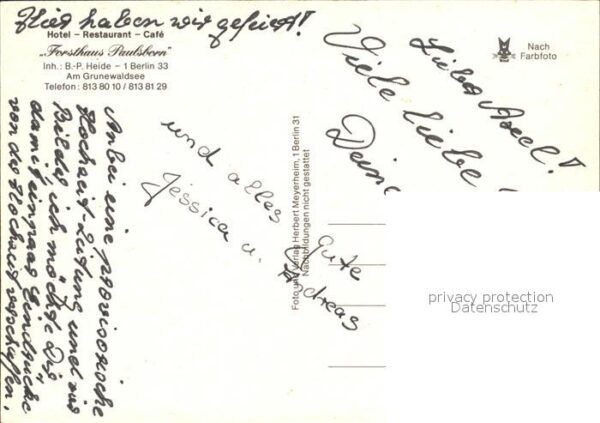 Hier haben wir gefeiert!
Hotel - Restaurant - Café
„Forsthaus Paulsborn"
Inh.: B.-P. Heide – 1 Berlin 33
Am Grunewaldsee
Telefon: 813 80 10 / 813 81 29
Nach
Farbfoto
Lieber Axel!
Viele liebe
Deine
und alles Gute
Jessica u. Andreas
Anbei eine provisorische
Hochzeit-Zeitung und
Bilder, ich möchte Dir
damit ein paar Eindrücke
von der Hochzeit verschaffen.
Foto und Verlag Herbert Meyerheim, 1 Berlin 31
Nachbildungen nicht gestattet
privacy protection
Datenschutz